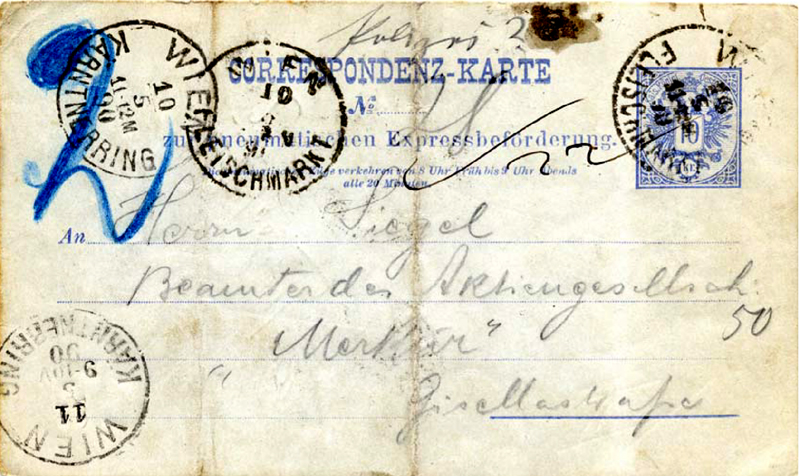 CORRESPONDENZ-KARTE
No
zur pneumatischen Expressbeförderung.
Die pneumatischen Züge verkehren von 8 Uhr Früh bis 9 Uhr Abends
alle 20 Minuten.
An Herrn Siegel
Beamter der Aktiengesellsch.
"Merkur"
50
Gisellastraße
WIEN
KÄRNTNERRING
10
5
11-12M
90
WIEN
FLEISCHMARKT
10
5
WIEN
FLEISCHMARKT
10
5
10
WIEN
KÄRNTNERRING
11
5
90